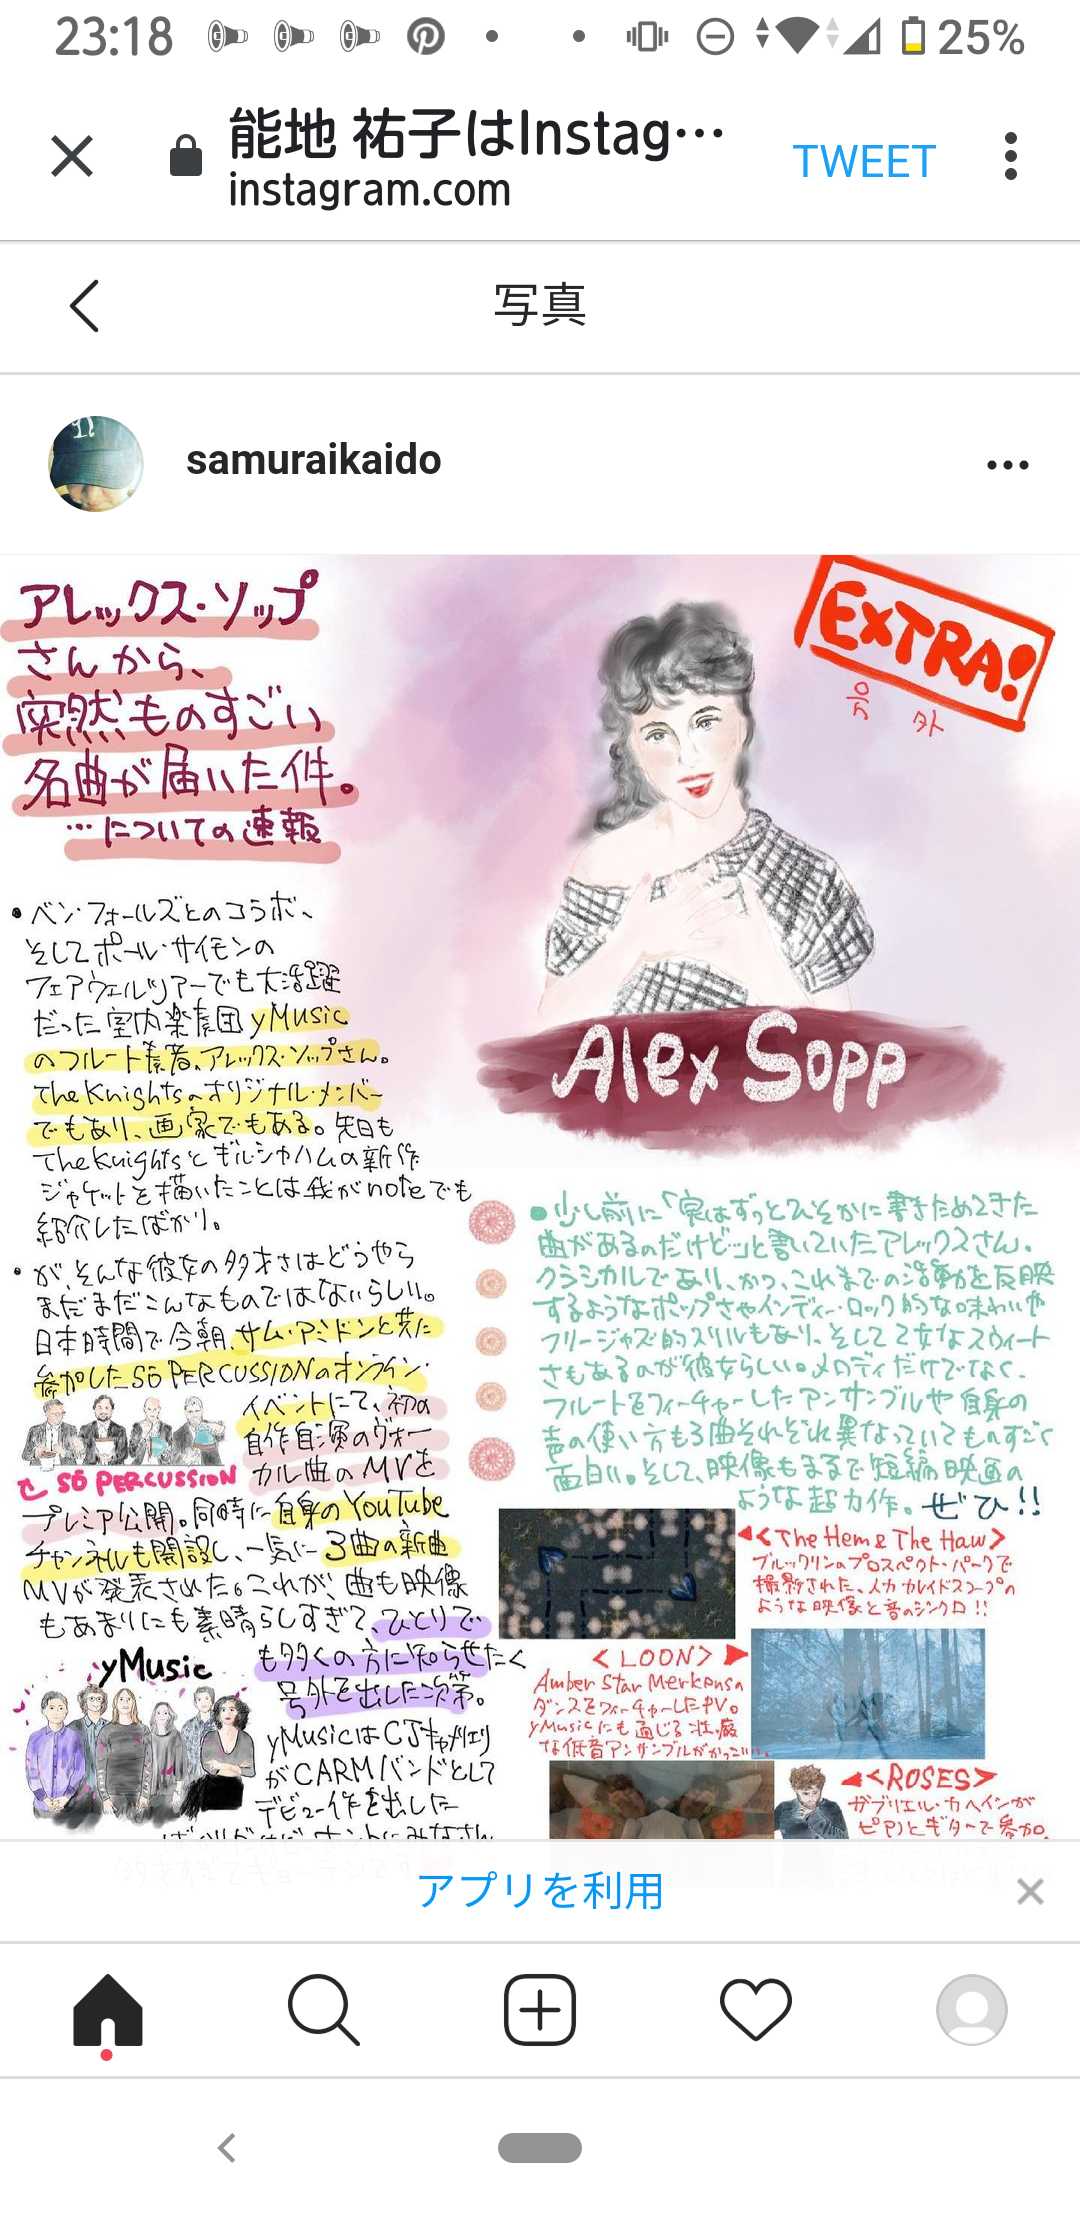 23:18
25%
能地 祐子はInstag…
instagram.com
TWEET
写真
samuraikaido
アレックス・ソップ
さんから、
突然ものすごい
名曲が届いた件。
…についての速報
EXTRA!
号外
Alex Sopp
・ベン・フォールズとのコラボ、
そしてポール・サイモンの
フェアウェルツアーでも大活躍
だった室内楽集団yMusic
のフルート奏者、アレックス・ソップさん。
The Knightsのオリジナル・メンバー
でもあり、画家でもある。先日も
The Knightsとギル・シャハムの新作
ジャケットを描いたことは我がnoteでも
紹介したばかり。
・が、そんな彼女の多才さはどうやら
まだまだこんなものではないらしい。
日本時間で今朝、サム・アミドンと共に
参加したSō PERCUSSIONのオンライン・
イベントにて、初の
自作自演のヴォー
カル曲のMVを
Sō PERCUSSION
プレミア公開。同時に自身のYouTube
チャンネルも開設し、一気に3曲の新曲
MVが発表された。これが、曲も映像
もあまりにも素晴らしすぎて、ひとりで
も多くの方に知らせたく
号外を出した次第。
yMusic
yMusicはCJキャメリエリ
がCARMバンドとして
デビュー作を出した
ばかりだけど、ホントにみなさん
多才すぎてギョーテンです
●少し前に「実はずっとひそかに書きためてきた
曲があるのだけど…」と書いていたアレックスさん。
クラシカルであり、かつ、これまでの活動を反映
するようなポップさやインディー・ロック的な味わいや
フリージャズ的スリルもあり、そしてどこかスウィート
さもあるのが彼女らしい。メロディだけでなく、
フルートをフィーチャーしたアンサンブルや自身の
声の使い方も3曲それぞれ異なっていてものすごく
面白い。そして、映像もまるで短編映画の
ような超力作。ぜひ!!
<The Hem & The Haw>
ブルックリンのプロスペクト・パークで
撮影された、人力カレイドスコープの
ような映像と音のシンクロ!!
<LOON>
Amber Star Merkensの
ダンスをフィーチャーしたPV。
yMusicにも通じる壮厳
な低音アンサンブルがかっこいい…
<ROSES>
ガブリエル・カヘインが
ピアノとギターで参加。
アプリを利用